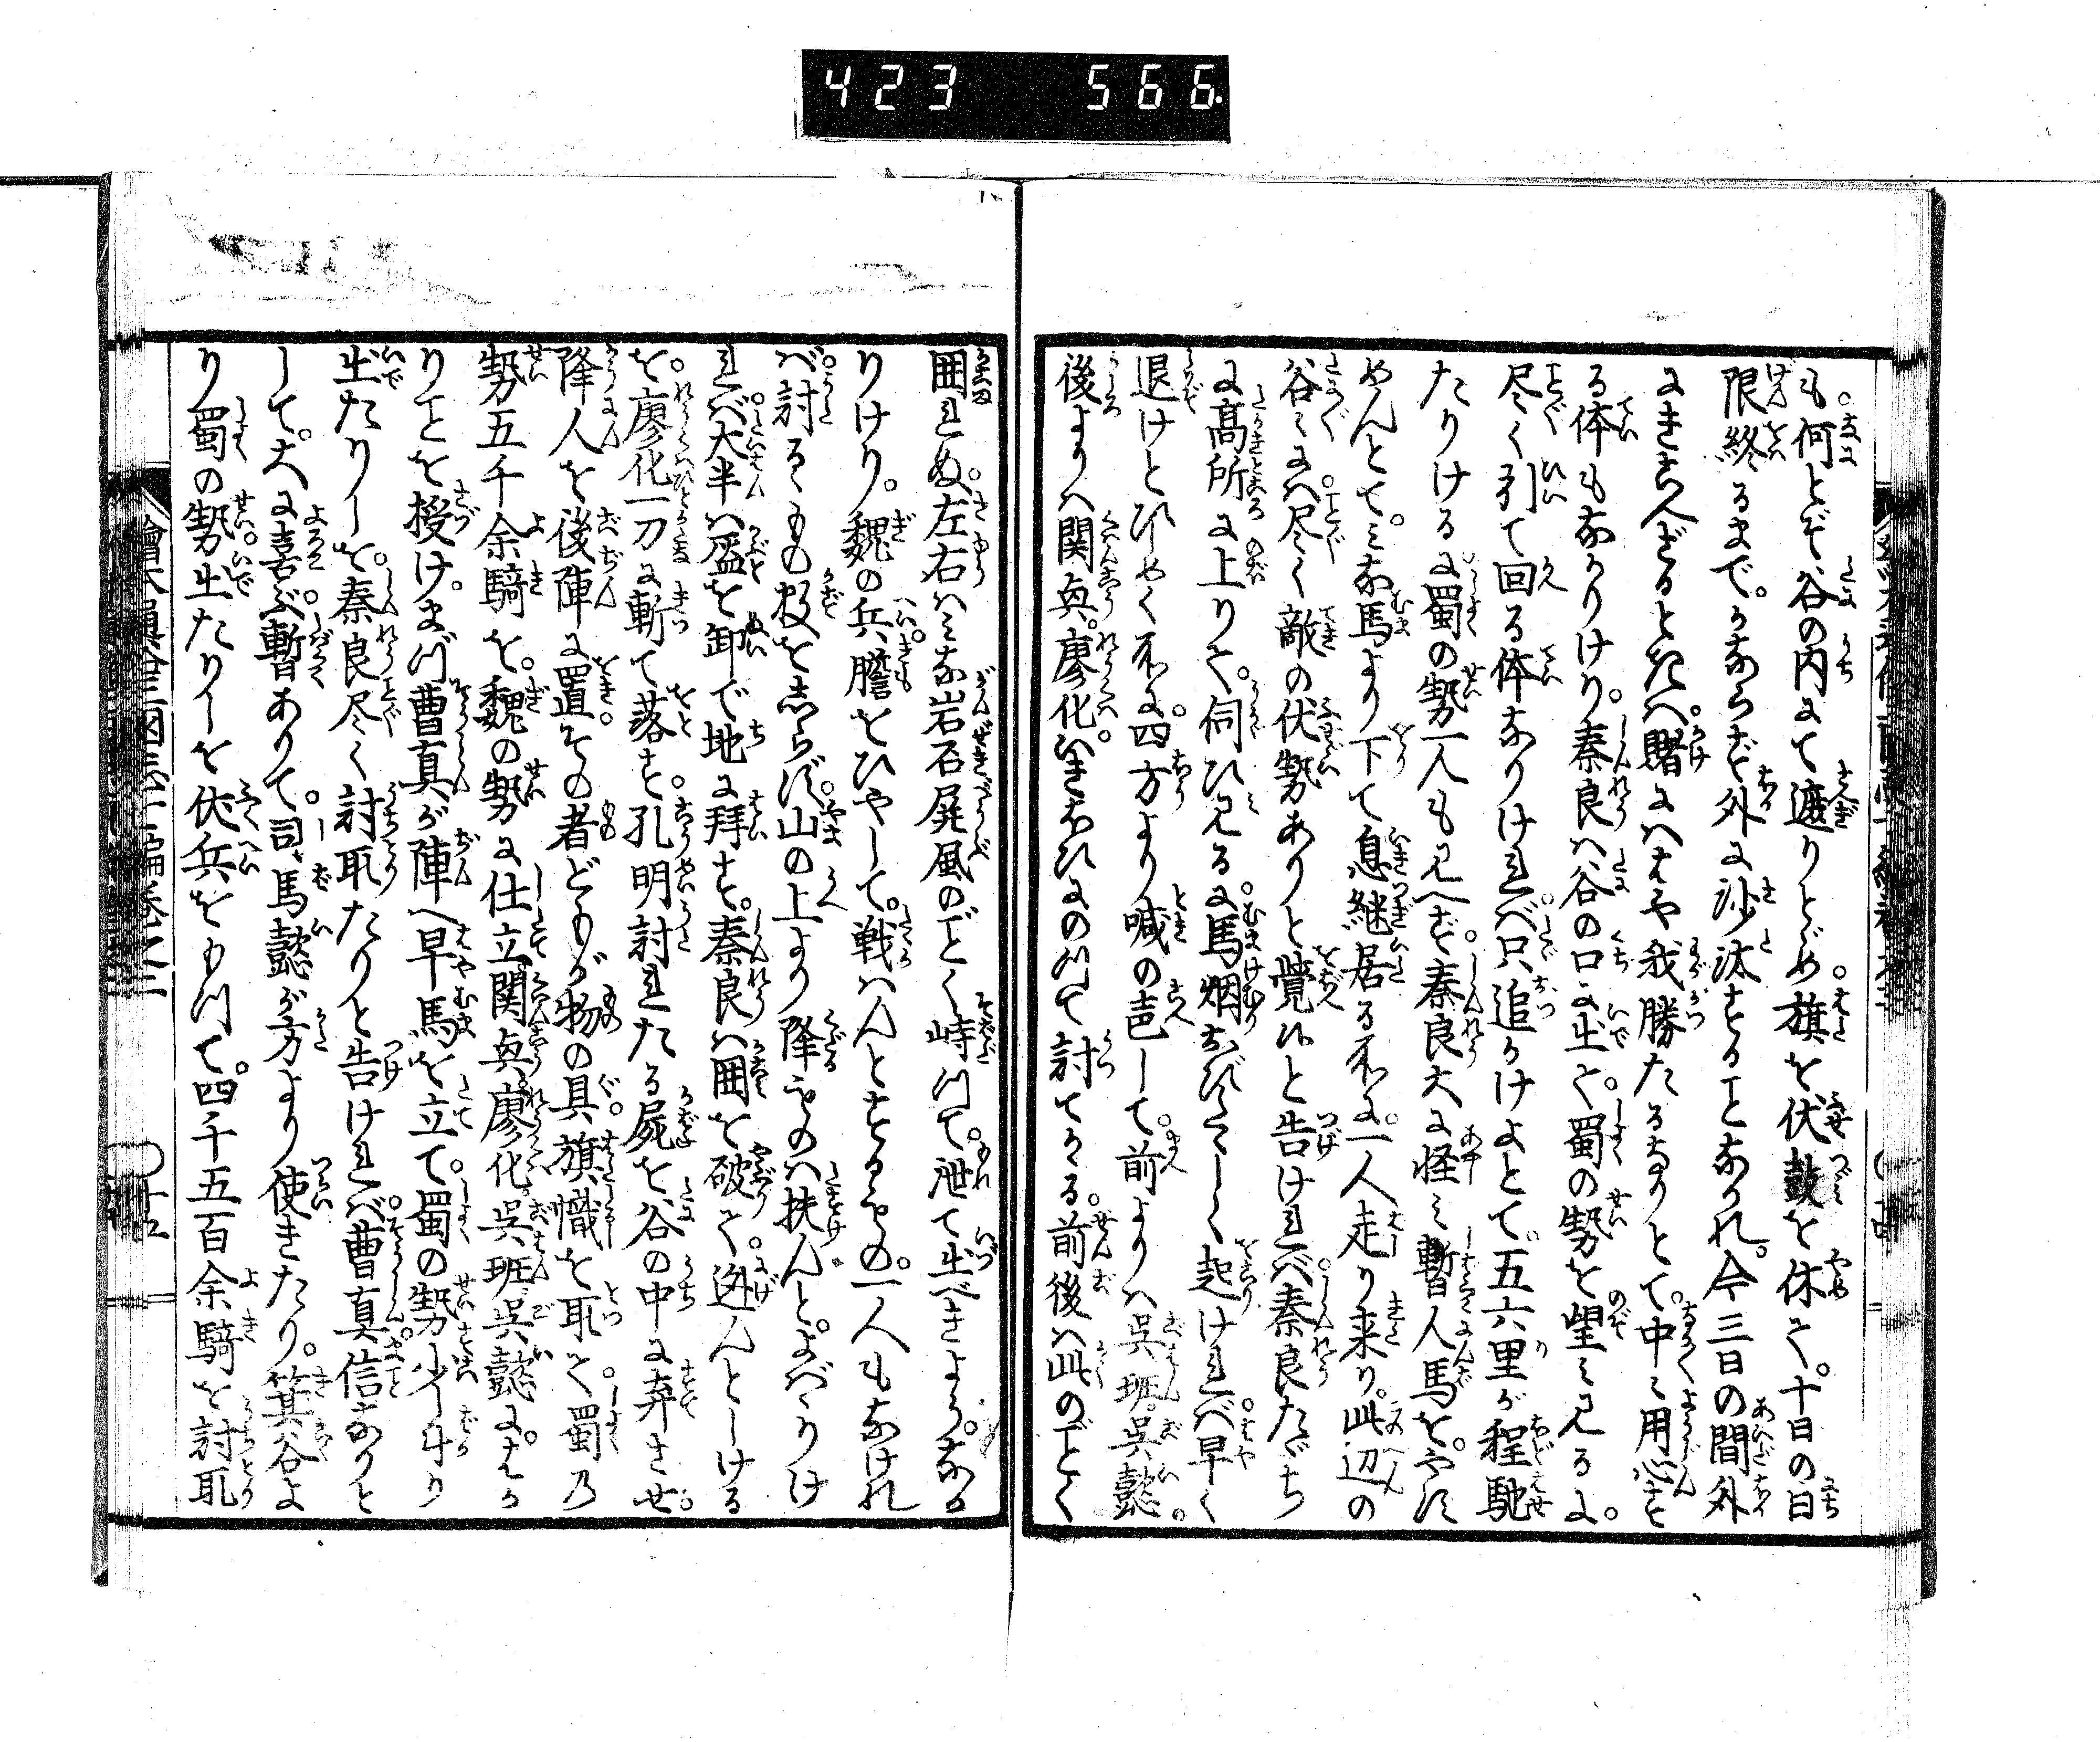 423 566.
も何とぞ谷の内にて遮りとゞめ旗を伏鼓を休て。十日の日
限終るまで。かならず外に沙汰することなかれ。今三日の間外
にきこへざるときハ。賭にハはや我勝たるなりとて。中〻用心す
る体もなかりけり。秦良ハ谷の口に出て。蜀の勢を望ミ見るに。
尽く引て回る体なりけれバ。只追かけよとて。五六里が程馳
たりけるに。蜀の勢一人も見へず。秦良大に怪ミ暫人馬を。やす
めんとて。ミな馬より下て息継居る所に。一人走り来り。此辺の
谷〻にハ。尽く敵の伏勢ありと覚ゆと告けれバ。秦良たゞち
に高所に上りて。伺ひ見るに。馬烟おびたゝしく起けれバ。早く
退けとひしめく所に。四方より喊の声して。前よりハ呉班。呉懿。
後よりハ関興。廖化。いきおひにのつて討てかゝる。前後ハ此のごとく
囲れぬ。左右ハミな岩石屏風のごとく峙つて。泄て出べきよう。なか
りけり。魏の兵膽をひやして。戦ハんとするもの。一人もなけれ
バ。討るゝもの数をしらず。山の上より降るものハ扶んと。よバゝりけ
れバ。大半ハ盔を卸で地に拜す。秦良ハ囲を破て。逃んとしける
を。廖化一刀に斬て落す。孔明討れたる屍を谷の中に弃させ。
降人を後陣に置。その者どもが物の具。旗幟を取て。蜀乃
勢五千余騎を。魏の勢に仕立。関興。廖化。呉班。呉懿に。はか
りことを授け。まづ曹真が陣へ早馬を立て。蜀の勢少斗り
出たりしを。秦良尽く討取たりと告けれバ。曹真信なりと
して。大に喜ぶ。暫ありて。司馬懿が方より使きたり。箕谷よ
り蜀の勢。出たりしを伏兵をもつて。四千五百余騎を討取